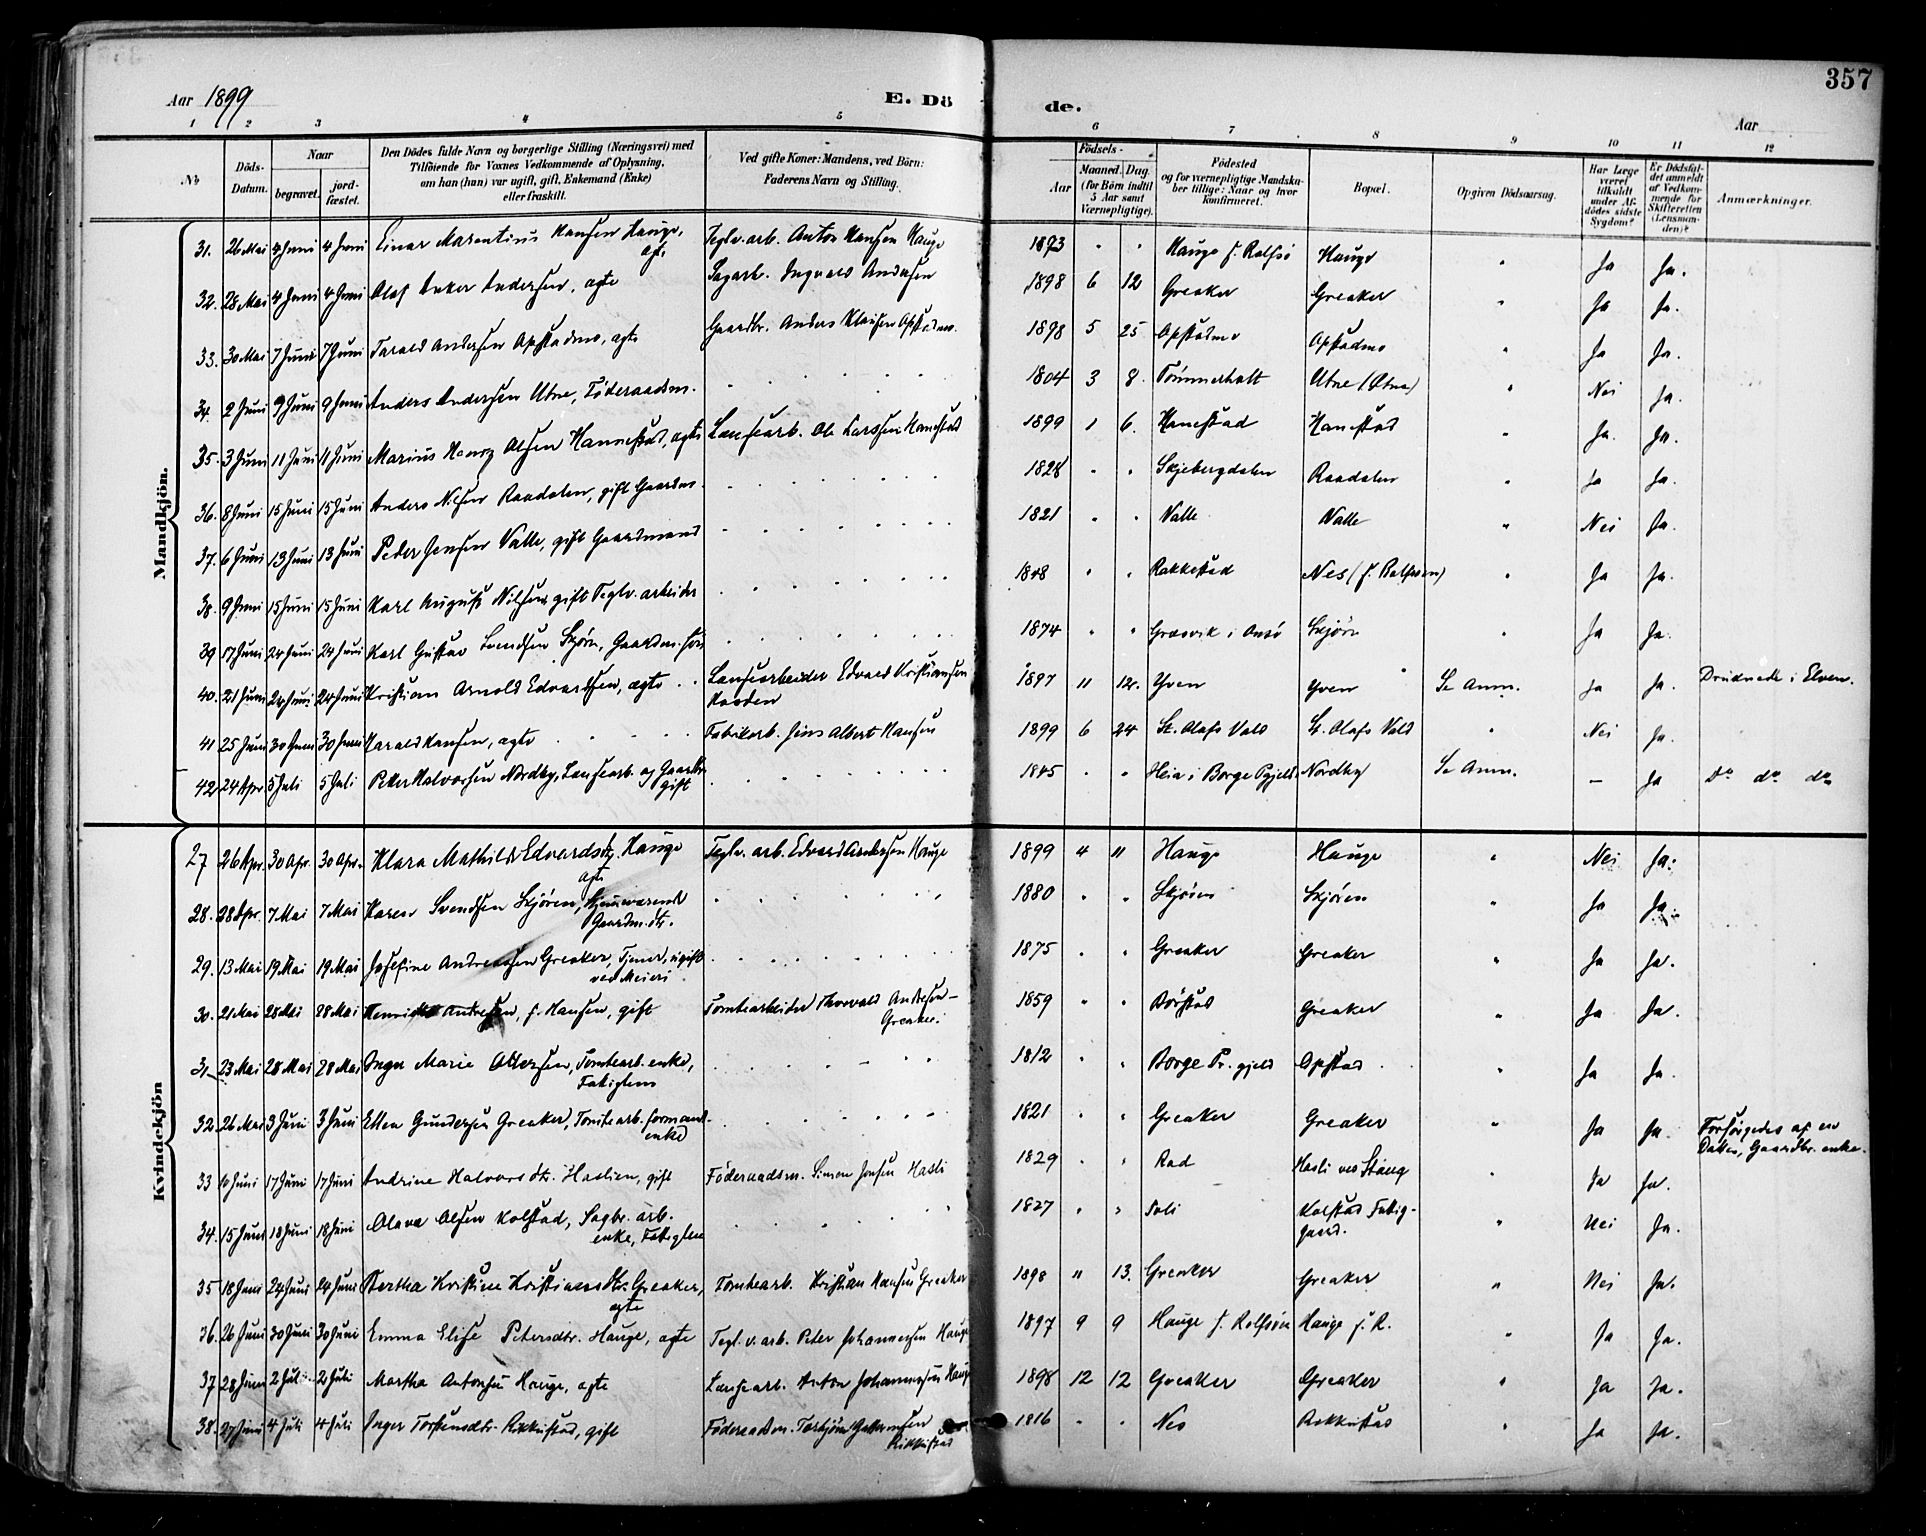 357
Aar 1899
E. Dö de.
Aar
1 2 3 4 5 6 7 8 9 10 11 12
No
Döds-Datum.
Naar
begravet.
jord-fæstet.
Den Dödes fulde Navn og borgerlige Stilling (Næringsvei) med
Tilföiende for Voxnes Vedkommende af Oplysning,
om han (hun) var ugift, gift, Enkemand (Enke)
eller fraskilt.
Ved gifte Koner: Mandens, ved Börn:
Faderens Navn og Stilling.
Födsels-
Aar
Maaned. Dag.
(for Börn indtil
5 Aar samt
Værnepligtige).
Födested
og for værnepligtige Mandska-
ber tillige: Naar og hvor
konfirmeret.
Bopæl.
Opgiven Dödsaarsag.
Har Læge
været
tilkaldt
under Af-
dödes sidste
Sygdom?
Er Dödsfal-
det anmeldt
af Vedkom-
mende for
Skifteretten
(Lensman-
den)?
Anmærkninger.
Mandkjön.
31. 26 Mai 4 Juni 4 Juni Einar Marentius Hansen Hauge, agt. Teglv. arb. Anton Hansen Hauge 1893 " " Hauge f. Rolfsø Hauge " Ja Ja.
32. 28 Mai 4 Juni 4 Juni Olaf Anker Andersen, agte Sagarb. Ingvald Andersen 1898 6 12 Greaker Greaker " Ja Ja.
33. 30 Mai 7 Juni 7 Juni Tarald Andersen Opstadmo, agte Gaardbr. Anders Klausen Opstadmo. 1898 5 25 Opstadmo Opstadmo " Ja Ja.
34. 2 Juni 9 Juni 9 Juni Anders Andersen Utne, Föderaadsm. 1804 3 8. Tömmerholt Utne (Utne) " Nei Ja.
35. 3 Juni 11 Juni 11 Juni Marius Henry Olsen Hannestad, agte Landsearb. Ole Larssen Hanestad 1899 1 6. Hanestad Hanestad " Ja. Ja.
36. 8 Juni 15 Juni 15 Juni Anders Nilsen Raadalen, gift Gaardm. 1828 " " Skjebergdalen Raadalen " Ja Ja.
37. 6 Juni 13 Juni 13 Juni Peder Jensen Valle, gift Gaardmand 1821 " " Valle Valle " Nei Ja.
38. 9 Juni 15 Juni 15 Juni Karl August Nilsen gift Teglv. arbeider 1848 " " Rakkestad Nes (f. Rolfsøen) " Ja Ja.
39 17 Juni 24 Juni 24 Juni Karl Gustav Svendsen Skjørn, Gaardm. søn 1874 " " Græsvik i Onsø Skjørn " Ja Ja.
40. 21 Juni 24 Juni 24 Juni Kristian Arnold Edvardsen, ægte Landsearbeider Edvard Kristiansen 1897 11 12. Yven Yven Se Anm. Ja Ja. Druknede i Elven.
41 25 Juni 30 Juni 30 Juni Harald Hansen, agte Fabrikarb. Jens Albert Hansen 1899 6 24 St. Olafs Vold St. Olafs Vold " Nei Ja.
42 24 Apr. 5 Juli 5 Juli Peter Halvorsen Nordby, Landsearb. og Gaardbr. gift 1845 " " Heia i Borge Pgjeld Nordby Se Anm. — Ja Do do do
Kvindekjön
27 26 Apr. 30 Apr. 30 Apr. Klara Mathilde Edvardsdtr. Hauge agte Teglv. arb. Edvard Andersen Hauge 1899 4 11 Hauge Hauge " Nei Ja.
28. 28 Apr. 7 Mai 7 Mai Karen Svendsen Skjören, hjemmværende Gaardm. dtr. 1880 " " Skjören Skjören " Ja Ja.
29. 13 Mai 19 Mai 19 Mai Josefine Andreassen Greaker, Tjener, ugift ved Meieri 1875 " " Greaker Greaker " Ja Ja.
30. 21 Mai 28 Mai 28 Mai Henriette Andresen, f. Hansen, gift Tomtearbeider Thorvald Andresen – Greaker. 1859 " " Börstad Greaker " Ja Ja.
31 23 Mai 28 Mai 28 Mai Inger Marie Ottersen, Tomtearb. enke, Fatiglem 1812 " " Borge Pr. gjeld Opstad " Ja Ja.
32. 26 Mai 3 Juni 3 Juni Ellen Gundersen Greaker, Tomtearb. formand enke 1821 " " Greaker Greaker " Ja Ja. Forsørgedes af en Datter, Gaardbr. enke.
33 10 Juni 17 Juni 17 Juni Andrine Halvorsdtr. Haslien, gift Föderaadsm. Simon Jensen Hasli 1829 " " Rad Hasli ved Stang " Ja Ja.
34. 15 Juni 18 Juni 18 Juni Olava Olsen Kolstad, Sagbr. arb. enke, Fatiglem 1827 " " Soli Kolstad Fatig-gaard. " Nei Ja.
35 18 Juni 24 Juni 24 Juni Bertha Kristine Kristiansdtr. Greaker, agte Tomtearb. Kristian Hansen Greaker 1898 11 13. Greaker Greaker " Nei Ja.
36. 26 Juni 30 Juni 30 Juni Emma Elise Petersdtr. Hauge, agte Tegl. v. arb. Peter Johannesen Hauge 1897 9 9 Hauge f. Rolfsøen Hauge f. R. " Ja Ja.
37 28 Juni 2 Juli 2 Juli Martha Antonsen Hauge, agte Landsearb. Anton Johannesen Hauge 1898 12 12 Greaker Greaker " Ja Ja.
38. 27 Juni 4 Juli 4 Juli Inger Torstensdtr. Rokkustad, gift Föderaadsm. Torbjörn 1816 " " Nes Rokkustad Ja Ja.